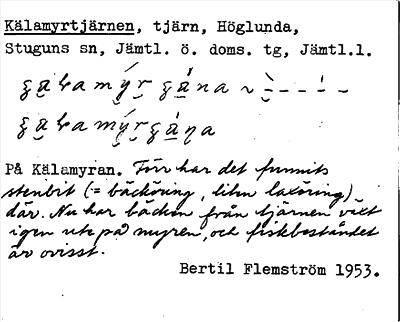 Kälamyrtjärnen, tjärn, Höglunda,
Stuguns sn, Jämtl. ö. doms. tg, Jämtl.l.
På Kälamyran. Förr har det funnits
stenbit (:= bäcköring, liten laxöring)
där. Nu har bäcken från tjärnen växt
igen ute på myren, och fiskbeståndet
är ovisst.
Bertil Flemström 1953.